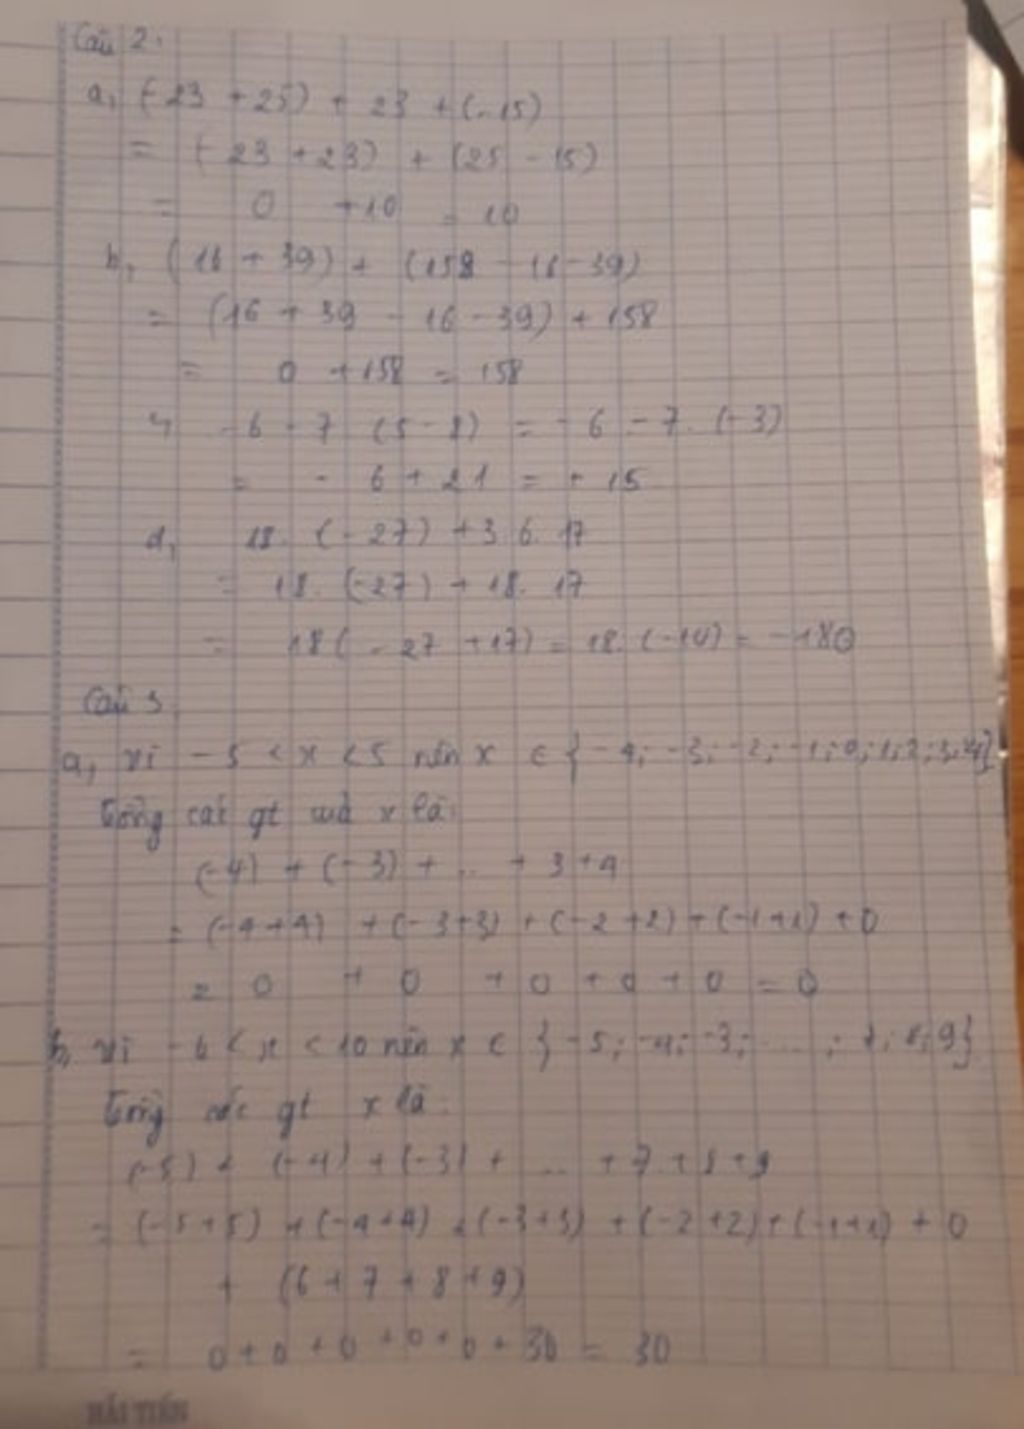 Câu 2.
a, (-23 + 25) + 23 + (-15)
= (-23 + 23) + (25 - 15)
= 0 + 10 = 10
b, (16 + 39) + (158 - 16 - 39)
= (16 + 39 - 16 - 39) + 158
= 0 + 158 = 158
c, -6 - 7 (5 - 8) = -6 - 7. (-3)
= - 6 + 21 = + 15
d, 18. (-27) + 3.6.17
= 18. (-27) + 18. 17
= 18 ( - 27 + 17) = 18. (-10) = -180
Câu 3
a, vì -5 < x < 5 nên x ∈ { -4; -3; -2; -1; 0; 1; 2; 3; 4}
Tổng các gt của x là:
(-4) + (-3) + ... + 3 + 4
= (-4+4) + (-3+3) + (-2+2) + (-1+1) + 0
= 0 + 0 + 0 + 0 + 0 = 0
b, vì -6 < x < 10 nên x ∈ { -5; -4; -3; ... ; 7; 8; 9}
Tổng các gt x là:
(-5) + (-4) + (-3) + ... + 7 + 8 + 9
= (-5+5) + (-4+4) + (-3+3) + (-2+2) + (-1+1) + 0
+ (6 + 7 + 8 + 9)
= 0 + 0 + 0 + 0 + 0 + 30 = 30
HẢI TIẾN